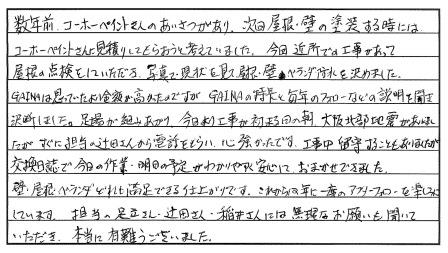 数年前、コーホーペイントさんのあいさつがあり、次回屋根・壁の塗装する時には
コーホーペイントさんに見積りしてもらおうと考えていました。今回近所での工事があって
屋根の点検をしていただき、写真で現状を見て屋根・壁・ベランダ防水を決めました。
GAINAは思っていたより金額が高かったのですが GAINAの特長と毎年のフォローなどの説明を聞き
決断しました。足場が組みあがり、今日より工事が始まる日の朝、大阪北部地震がありまし
たが すぐに担当の辻田さんから電話をもらい、心強かったです。工事中 留守することもありましたが
交換日誌で今日の作業・明日の予定がわかりやすく安心して、おまかせできました。
壁・屋根・ベランダどれも満足できる仕上がりです。これから年に一度のアフターフォローを楽しみに
しています。担当の足立さん・辻田さん・稲井さんには無理なお願いも聞いて
いただき、本当に有難うございました。